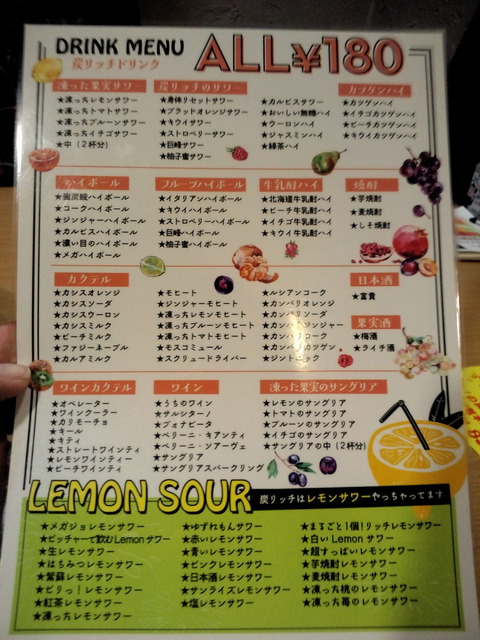 DRINK MENU
ALL¥180
炭リッチドリンク
凍った果実サワー
★凍ったレモンサワー
★凍ったトマトサワー
★凍ったプルーンサワー
★凍ったイチゴサワー
★中(2杯分)
炭リッチのサワー
★身体リセットサワー
★ブラッドオレンジサワー
★キウイサワー
★ストロベリーサワー
★巨峰サワー
★柚子蜜サワー
★カルピスサワー
★おいしい無糖ハイ
★ウーロンハイ
★ジャスミンハイ
★緑茶ハイ
カツゲンハイ
★カツゲンハイ
★イチゴカツゲンハイ
★ピーチカツゲンハイ
★キウイカツゲンハイ
ハイボール
★コークハイボール
★ジンジャーハイボール
★カルピスハイボール
★濃い目のハイボール
★メガハイボール
フルーツハイボール
★イタリアンハイボール
★キウイハイボール
★ストロベリーハイボール
★巨峰ハイボール
★柚子蜜ハイボール
牛乳酎ハイ
★北海道牛乳酎ハイ
★ピーチ牛乳酎ハイ
★イチゴ牛乳酎ハイ
★キウイ牛乳酎ハイ
焼酎
★芋焼酎
★麦焼酎
★しそ焼酎
カクテル
★カシスオレンジ
★カシスソーダ
★カシスウーロン
★カシスミルク
★ピーチミルク
★ファジーネーブル
★カルアミルク
★モヒート
★ジンジャーモヒート
★凍ったレモンモヒート
★凍ったプルーンモヒート
★凍ったトマトモヒート
★モスコミュール
★スクリュードライバー
★ルシアンコーク
★カンパリオレンジ
★カンパリソーダ
★カンパリジンジャー
★カンパリコーク
★カンパリカツゲン
★ジントニック
日本酒
★富貴
果実酒
★梅酒
★ライチ酒
ワインカクテル
★オペレーター
★ワインクーラー
★カリモーチョ
★キール
★キティ
★ストレートワインティ
★レモンワインティー
★ピーチワインティ
ワイン
★うちのワイン
★サルシターノ
★プオナビータ
★ベリーニ・キアンティ
★ベリーニ・ソアーヴェ
★サングリア
★サングリアスパークリング
凍った果実のサングリア
★レモンのサングリア
★トマトのサングリア
★プルーンのサングリア
★イチゴのサングリア
★サングリアの中(2杯分)
LEMON SOUR
炭リッチはレモンサワーやっちゃってます
★メガジョレモンサワー
★ピッチャーで飲むLemonサワー
★生レモンサワー
★はちみつレモンサワー
★紫蘇レモンサワー
★ビリっ!レモンサワー
★紅茶レモンサワー
★凍ったレモンサワー
★ゆずれもんサワー
★赤いレモンサワー
★青いレモンサワー
★ピンクレモンサワー
★日本酒レモンサワー
★サンライズレモンサワー
★塩レモンサワー
★まるごと1個!リッチレモンサワー
★白いLemonサワー
★超すっぱいレモンサワー
★芋焼酎レモンサワー
★麦焼酎レモンサワー
★凍った桃のレモンサワー
★凍った苺のレモンサワー